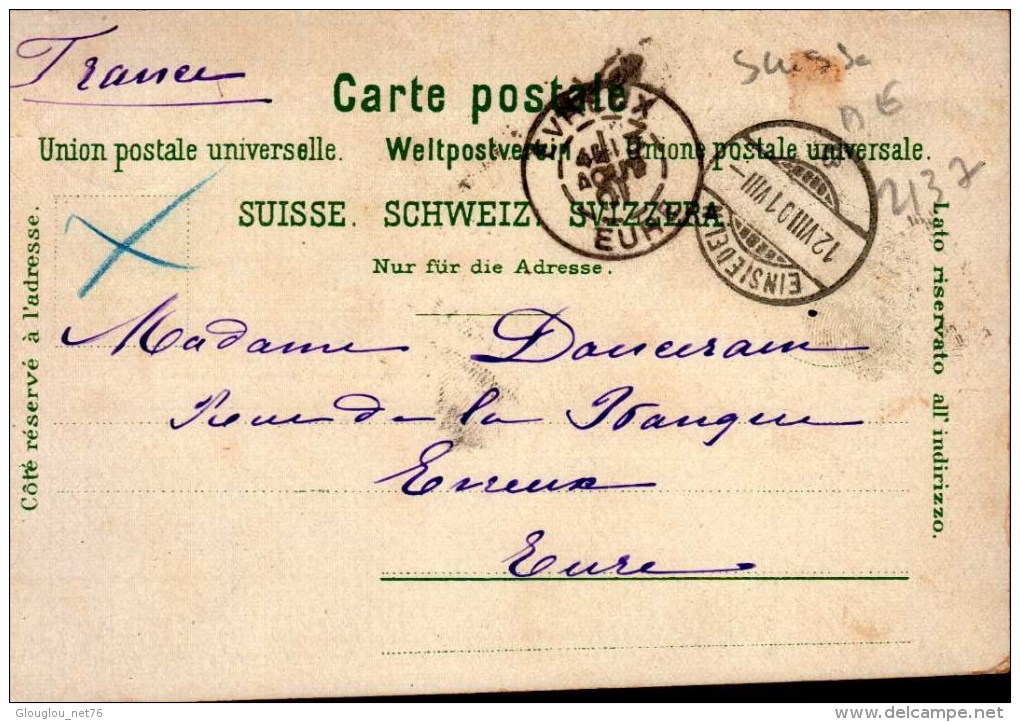 France
Suisse
Carte postale
Union postale universelle. Weltpostverein Unione postale universale.
2137
SUISSE. SCHWEIZ. SVIZZERA.
Nur für die Adresse.
EVREUX
EURE
EINSIEDELN
12.VIII.01.VIII
Côté réservé à l'adresse.
Lato riservato all'indirizzo.
Madame Doucerain
Rue de la Banque
Evreux
Eure
Glouglou_net76
delcampe.net